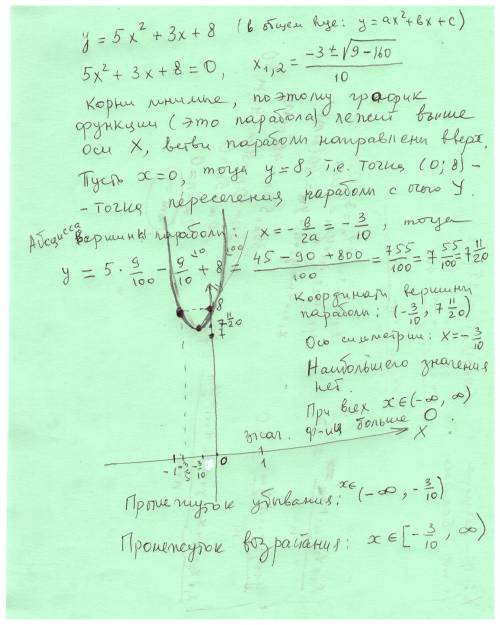 y = 5x² + 3x + 8 (в общем виде: y = ax² + вx + c)
5x² + 3x + 8 = 0, x₁,₂ = (-3 ± √(9 - 160)) / 10
Корни мнимые, поэтому график
функции (это парабола) лежит выше
оси X, ветви параболы направлены вверх.
Пусть x = 0, тогда y = 8, т.е. точка (0; 8) -
- точка пересечения параболы с осью Y.
Абсцисса вершины параболы: x = - в/2a = - 3/10, тогда
y = 5 · 9/100 - 9/10 + 8 = (45 - 90 + 800)/100 = 755/100 = 7 55/100 = 7 11/20
Координаты вершины
параболы: (-3/10, 7 11/20)
Ось симметрии: x = -3/10
Наибольшего значения
нет.
При всех x ∈ (-∞, ∞)
знач. ф-ции больше 0.
8
7 11/20
7
X
-1 -3/5 -3/10 0 1
Промежуток убывания: x ∈ (-∞, -3/10)
Промежуток возрастания: x ∈ [-3/10, ∞)